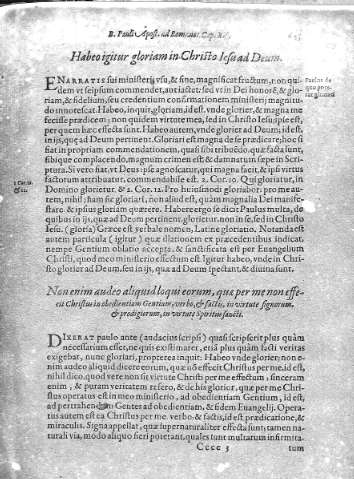 B. Pauli Apost. ad Romanos. Cap. XV.
Habeo igitur gloriam in Christo Iesu ad Deum.
ENARRATIS sui ministerij vsu, & fine, magnificat fructum, non qui-
dem vt seipsum commendet, aut iactet: sed vt in Dei honorẽ, & glo-
riam, & fidelium, seu credentium confirmationem ministerij magnitu-
do innotescat. Habeo, inquit, gloriam, id est. vnde glorier, & magna me
fecisse prædicem: non quidem virtute mea, sed in Christo Iesu: ipse est,
per quem hæc effecta sunt. Habeo autem, vnde glorier ad Deum: id est,
in ijs, quæ ad Deum pertinent. Gloriari est magna de se prædicare: hoc si
fiat in propriam commendationem, quasi sibi tribuẽdo, quæ facta sunt,
sibique complacendo, magnum crimen est: & damnatum sæpe in Scri-
ptura. Si vero fiat, vt Deus ipse agnoscatur, qui magna facit, & ipsi virtus
factorum attribuatur. commendabile est. 2. Cor. 10. Qui gloriatur, in
Domino glorietur. & 2. Cor. 12. Pro huiusmodi gloriabor: pro me au-
tem, nihil: nam sic gloriari, non aliud est, quàm magnalia Dei manife-
stare. & ipsius gloriam quærere. Habere ergo se dicit Paulus multa, de
quibus in ijs, quæ ad Deum pertinent, glorietur. non in se, sed in Christo
Iesu. (gloria) Græce est verbale nomen, Latine gloriatio. Notanda est
autem particula (igitur) quæ illationem ex præcedentibus indicat.
nempe Gentium oblatio accepta, & sanctificata est per Euangelium
Christi, quod meo ministerio effectum est. Igitur habeo, vnde in Chri-
sto glorier ad Deum. seu in ijs, quæ ad Deum spectant, & diuina sunt.
Non enim audeo aliquid loqui eorum, quæ per me non effe-
cit Christus in obedientiam Gentium, verbo, & factis, in virtute signorum,
& prodigiorum, in virtute Spiritus sancti.
DIXERAT paulo ante (audacius scripsi) quasi scripserit plus quàm
necessarium esset, ne quis existimaret, etiã plus quàm facti veritas
exigebat, nunc gloriari, propterea inquit: Habeo vnde glorier: non e-
nim audeo aliquid dicere eorum, quæ nõ effecit Christus per me, id est,
nihil dico, quod vere non sit virtute Christi per me effectum, sinceram
enim, & puram veritatem refero, & de his glorior. quæ per me Chri-
stus operatus est in meo ministerio, ad obedientiam Gentium, id est,
ad pertrahendam Gentes ad obedientiam, & fidem Euangelij. Opera-
tus autem est ea Christus per me. verbo & factis, id est prædicatione, &
miraculis. Signa appellat, quæ supernaturaliter effecta sunt, tamen na-
turali via, modo aliquo fieri poterant, quales sunt multarum infirmita-
Cccc 5 tum